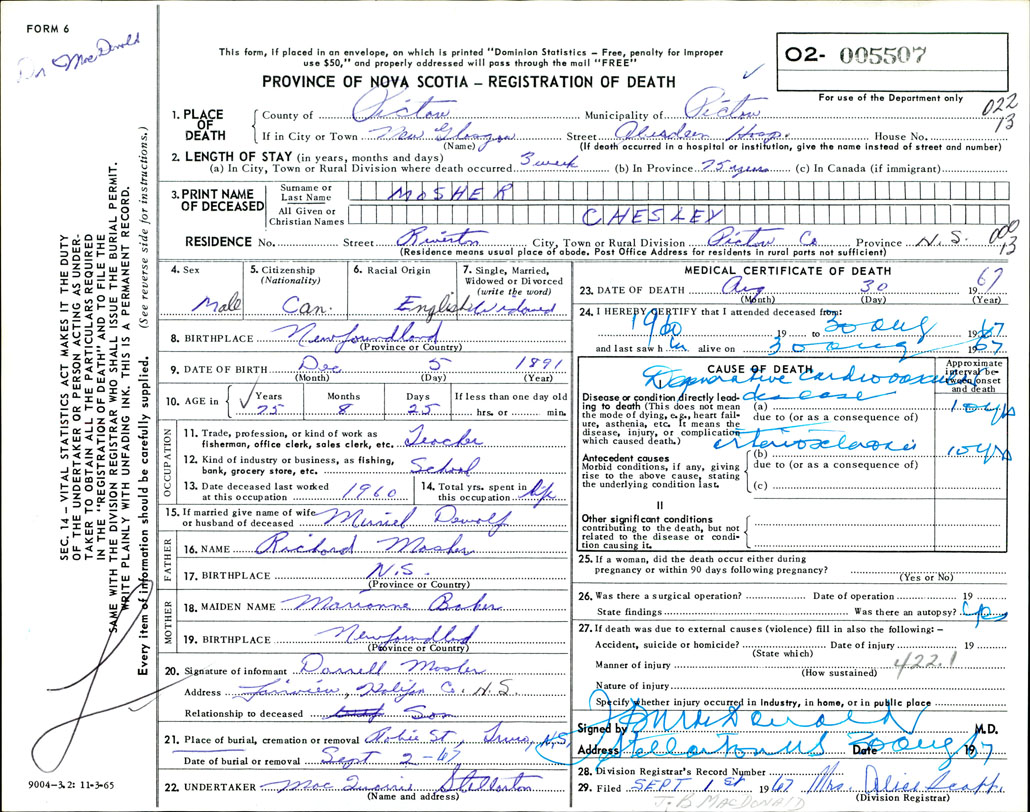 FORM 6
Dr MacDonald
This form, if placed in an envelope, on which is printed "Dominion Statistics – Free, penalty for improper
use $50," and properly addressed will pass through the mail "FREE"
PROVINCE OF NOVA SCOTIA – REGISTRATION OF DEATH
O2- 005507
For use of the Department only
022
13
1. PLACE OF DEATH
County of Pictou Municipality of Pictou
If in City or Town New Glasgow Street Aberdeen Hosp. House No.
(Name) (If death occurred in a hospital or institution, give the name instead of street and number)
2. LENGTH OF STAY (in years, months and days)
(a) In City, Town or Rural Division where death occurred 3 week (b) In Province 75 years (c) In Canada (if immigrant)
3. PRINT NAME OF DECEASED
Surname or Last Name MOSHER
All Given or Christian Names CHESLEY
RESIDENCE No. Street Riverton City, Town or Rural Division Pictou Co Province N.S.
000
13
(Residence means usual place of abode. Post Office Address for residents in rural parts not sufficient)
4. Sex Male
5. Citizenship (Nationality) Can.
6. Racial Origin English
7. Single, Married, Widowed or Divorced (write the word) Widowed
8. BIRTHPLACE Newfoundland
(Province or Country)
9. DATE OF BIRTH Dec 5 1891
(Month) (Day) (Year)
10. AGE in Years 75 Months 8 Days 25 If less than one day old hrs. or min.
OCCUPATION
11. Trade, profession, or kind of work as fisherman, office clerk, sales clerk, etc. Teacher
12. Kind of industry or business, as fishing, bank, grocery store, etc. School
13. Date deceased last worked at this occupation 1960
14. Total yrs. spent in this occupation life
15. If married give name of wife or husband of deceased Muriel Dewolf
FATHER
16. NAME Richard Mosher
17. BIRTHPLACE N.S.
(Province or Country)
MOTHER
18. MAIDEN NAME Marianne Baker
19. BIRTHPLACE Newfoundland
(Province or Country)
20. Signature of informant Darrell Mosher
Address Fairview, Halifax Co. N.S.
Relationship to deceased Son
21. Place of burial, cremation or removal Robie St., Truro, N.S.
Date of burial or removal Sept 2 - 67
22. UNDERTAKER Mac Stellarton
(Name and address)
MEDICAL CERTIFICATE OF DEATH
23. DATE OF DEATH Aug 30 1967
(Month) (Day) (Year)
24. I HEREBY CERTIFY that I attended deceased from:
1960 19 to 30 aug 1967
and last saw him alive on 30 aug 1967
CAUSE OF DEATH
Approximate interval between onset and death
Disease or condition directly leading to death (This does not mean the mode of dying, e.g., heart failure, asthenia, etc. It means the disease, injury, or complication which caused death.)
Degenerative cardiovascular disease
(a) 10 yrs
due to (or as a consequence of)
Antecedent causes
Morbid conditions, if any, giving rise to the above cause, stating the underlying condition last.
arteriosclerosis
(b) 10 yrs
due to (or as a consequence of)
(c)
II
Other significant conditions
contributing to the death, but not related to the disease or condition causing it.
25. If a woman, did the death occur either during
pregnancy or within 90 days following pregnancy?
(Yes or No)
26. Was there a surgical operation? Date of operation 19
State findings Was there an autopsy?
27. If death was due to external causes (violence) fill in also the following: –
Accident, suicide or homicide? Date of injury 19
(State which)
Manner of injury 422.1
(How sustained)
Nature of injury
Specify whether injury occurred in Industry, in home, or in public place
Signed by J B MacDonald M.D.
Address Stellarton NS Date 30 aug 1967
28. Division Registrar's Record Number
29. Filed SEPT 1st 1967 Mrs. Alice
(Division Registrar)
J. B MACDONALD
SEC. 14 – VITAL STATISTICS ACT MAKES IT THE DUTY
OF THE UNDERTAKER OR PERSON ACTING AS UNDER-
TAKER TO OBTAIN ALL THE PARTICULARS REQUIRED
IN THE "REGISTRATION OF DEATH" AND TO FILE THE
SAME WITH THE DIVISION REGISTRAR WHO SHALL ISSUE THE BURIAL PERMIT.
WRITE PLAINLY WITH UNFADING INK. THIS IS A PERMANENT RECORD.
Every item of information should be carefully supplied. (See reverse side for instructions.)
9004-3.2: 11-3-65